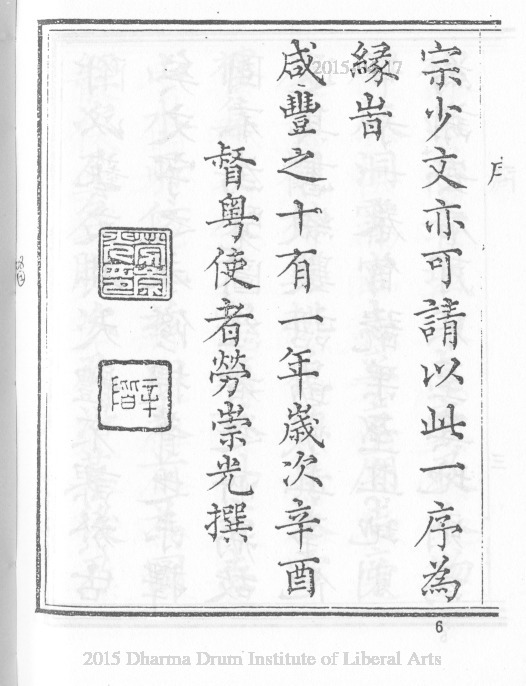 宗少文亦可請以此一序為
緣旹
咸豐之十有一年歲次辛酉
督粵使者勞崇光撰
勞崇光印
辛階
序
三
6
2015 Dharma Drum Institute of Liberal Arts